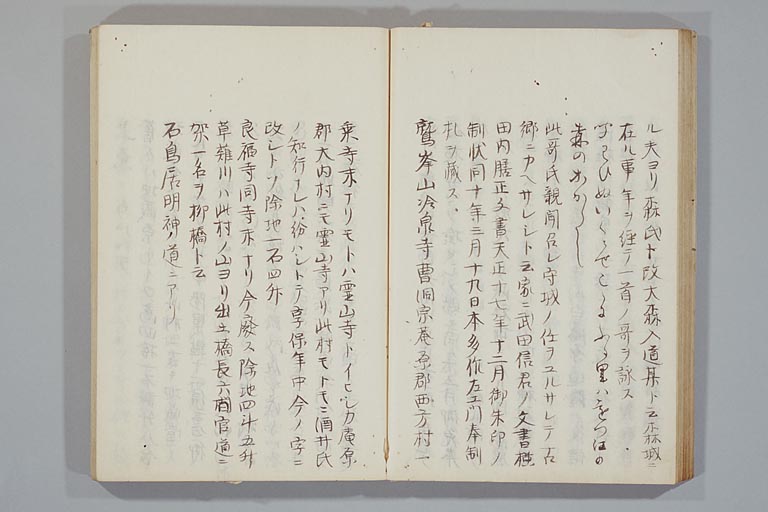 ル夫ヨリ森氏ト改大森入道某ト云森城ニ
在ル事年ヲ経テ一首ノ哥ヲ詠ス
森の
此哥氏親聞召レ守城ノ仕ヲユルサレテ古
郷ニカヘサレシト云家ニ武田信君ノ文書
田内膳正文書天正十七年十二月御朱印ノ
制状同十年三月十九日本多作左エ門奉制
札ヲ蔵ス
鷲峯山冷泉寺曹洞宗菴原郡西方村一
乗寺末ナリモトハ霊山寺トイヒシカ庵原
郡大内村ニモ霊山寺アリ此村モトモニ酒井氏
ノ知行ナレハ紛ハシトテ享保年中今ノ字ニ
改シトソ除地一石四升
良福寺同寺末ナリ今廢ス除地四斗五升
草薙川ハ此村ノ山ヨリ出土橋長六間官道ニ
架一名ヲ柳橋ト云
石鳥居明神ノ道ニアリ